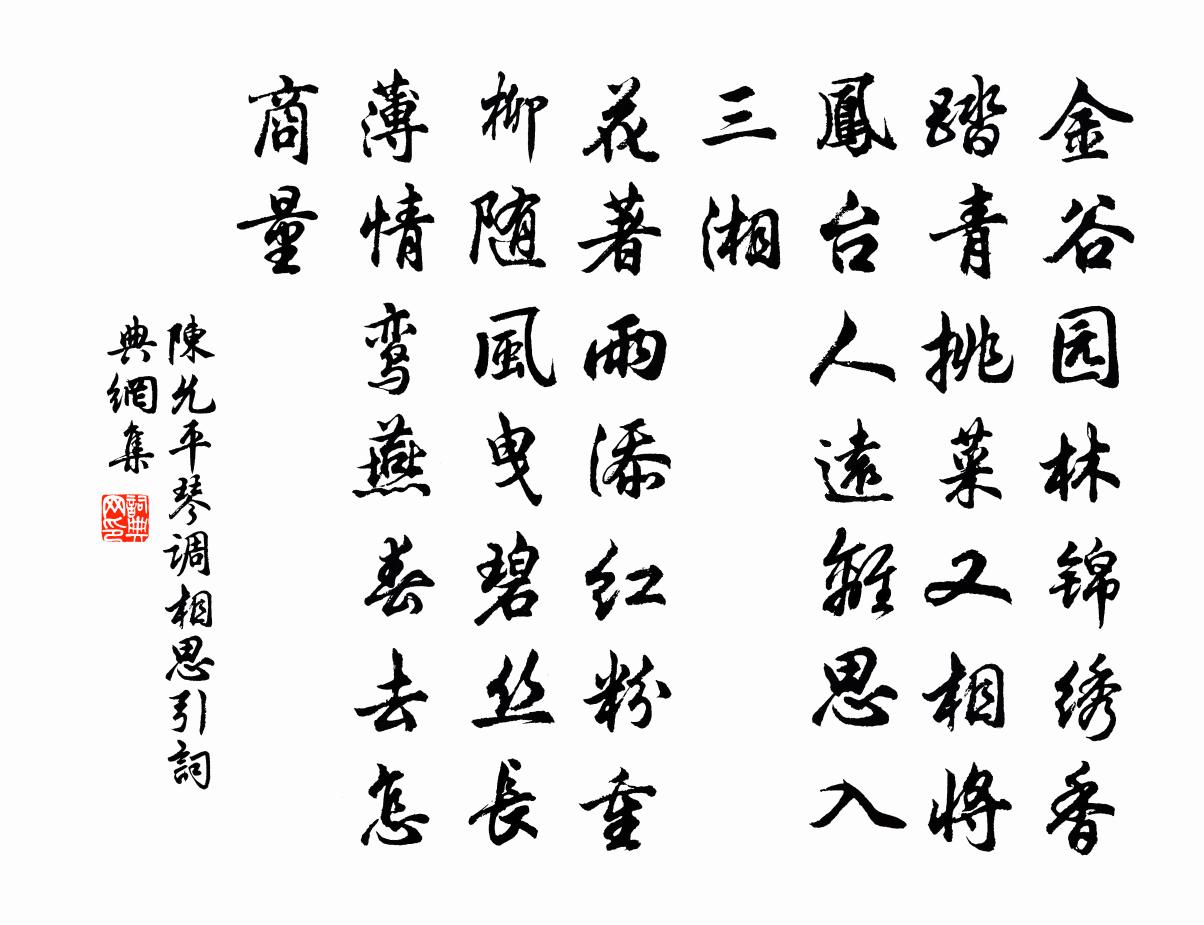 金谷园林锦绣香
踏青挑菜又相将
鳳台人遠離思入
三湘
花著雨添红粉重
柳随風曳碧丝長
薄情鸾燕春去怎
商量
陳允平琴调相思引詞
典網集
詞典
网印